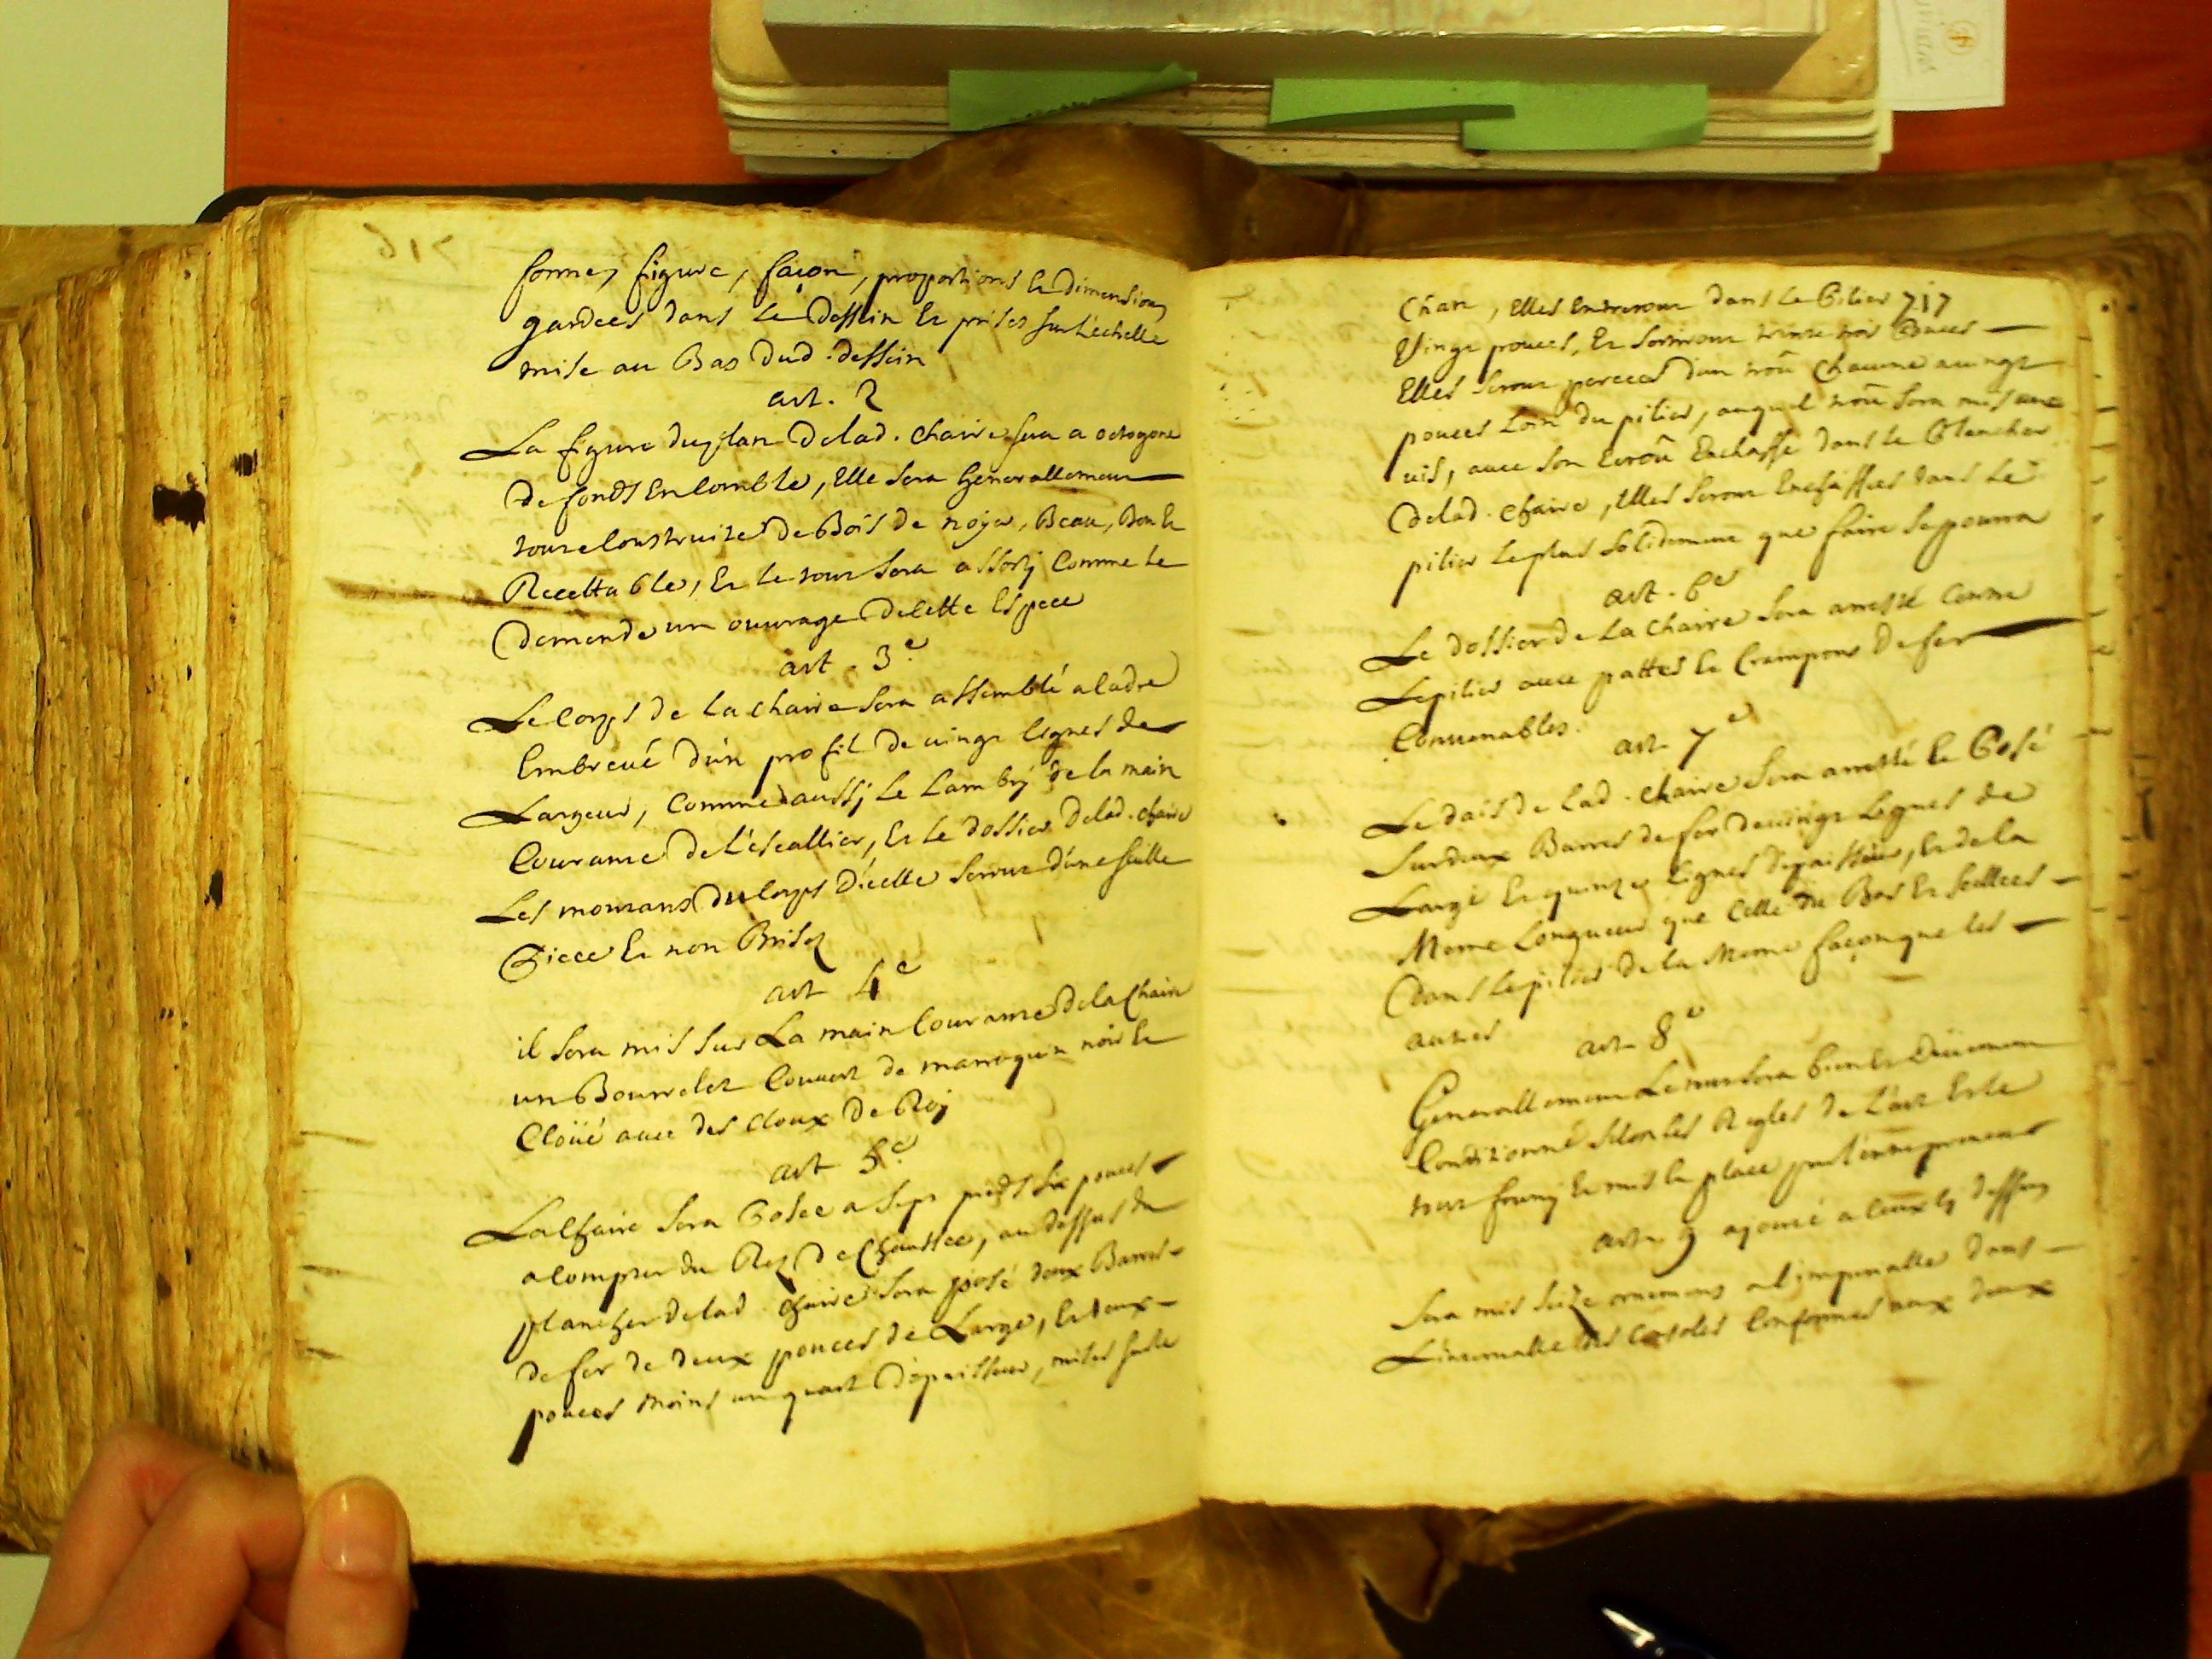 forme, figure, façon, proportions et dimensions
gardees dans le dessein et prises sur L'echelle
mise au Bas dud. dessein
art. 2
La figure du plan delad. chaire sera a octogone
de fonds En Comble, Elle sera Generallement
toute Construite de Bois de noyer, Beau, Bon et
Recettable, Et le tout sera assorty Comme le
demande un ouvrage decette Espece
art. 3e.
Le Corps de la chaire sera assemblé a ladre
Embrevé d'un profil de vingt lignes de
Largeur, Comme aussy le Lambry de la main
Courante de L'escallier, Et le dossier delad. chaire
Les montans du Corps d'icelle seront d'une seulle
Piece Et non Brisez
art 4e
il sera mis sur La main Courante de la Chaire
un Bourrelet Couvert de marroquin noir Et
Cloüé avec des Cloux de Roy
art 5e.
La Chaire sera Posée a sept pieds six pouces
a Compter du Rez de Chaussée, au dessus du
plancher delad. Chaire sera posé deux Barres
de fer de deux pouces de Large, Et deux
pouces moins un quart d'epaisseur, mises sur le
Chan, Elles Entreront dans le Pilier 717
Vingt pouces, Et sortiront trente trois Pouces
Elles seront percees d'un troû chacune a vingt
pouces Loin du pilier, auquel troû sera mis une
vis, avec son Ecroû Enchassé dans le Plancher
delad. Chaire, Elles seront Enchassées dans Le
pilier Le plus solidement que faire se pourra
art. 6e
Le dossier de La Chaire sera arresté Contre
Le pilier avec pattes Et Crampons de fer
Convenables.
art. 7e
Le dais de Lad. Chaire sera arresté Et Posé
sur deux Barres de fer de vingt Lignes de
Large Et quinze Lignes d'epaisseur, Et de la
Meme Longueur que Celle du Bas Et scellees
dans Le pilier de la Meme façon que les
autres
art. 8e
Generallement Le tout sera bien Et Düement
Conditionné selon les Regles de L'art Et le
tout fourny Et mis En place par l'entrepreneur
art. 9 ajouté a Ceux cy dessus
Sera mis seize ornemens a l'imperialle dans
L'intervalle des Consoles Conformes aux deux